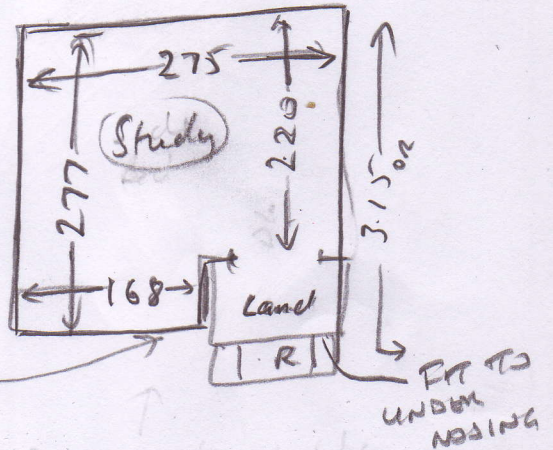 275
Study
220
277
3.15 OR
168
Land
R
FIT TO
UNDER
NOSING